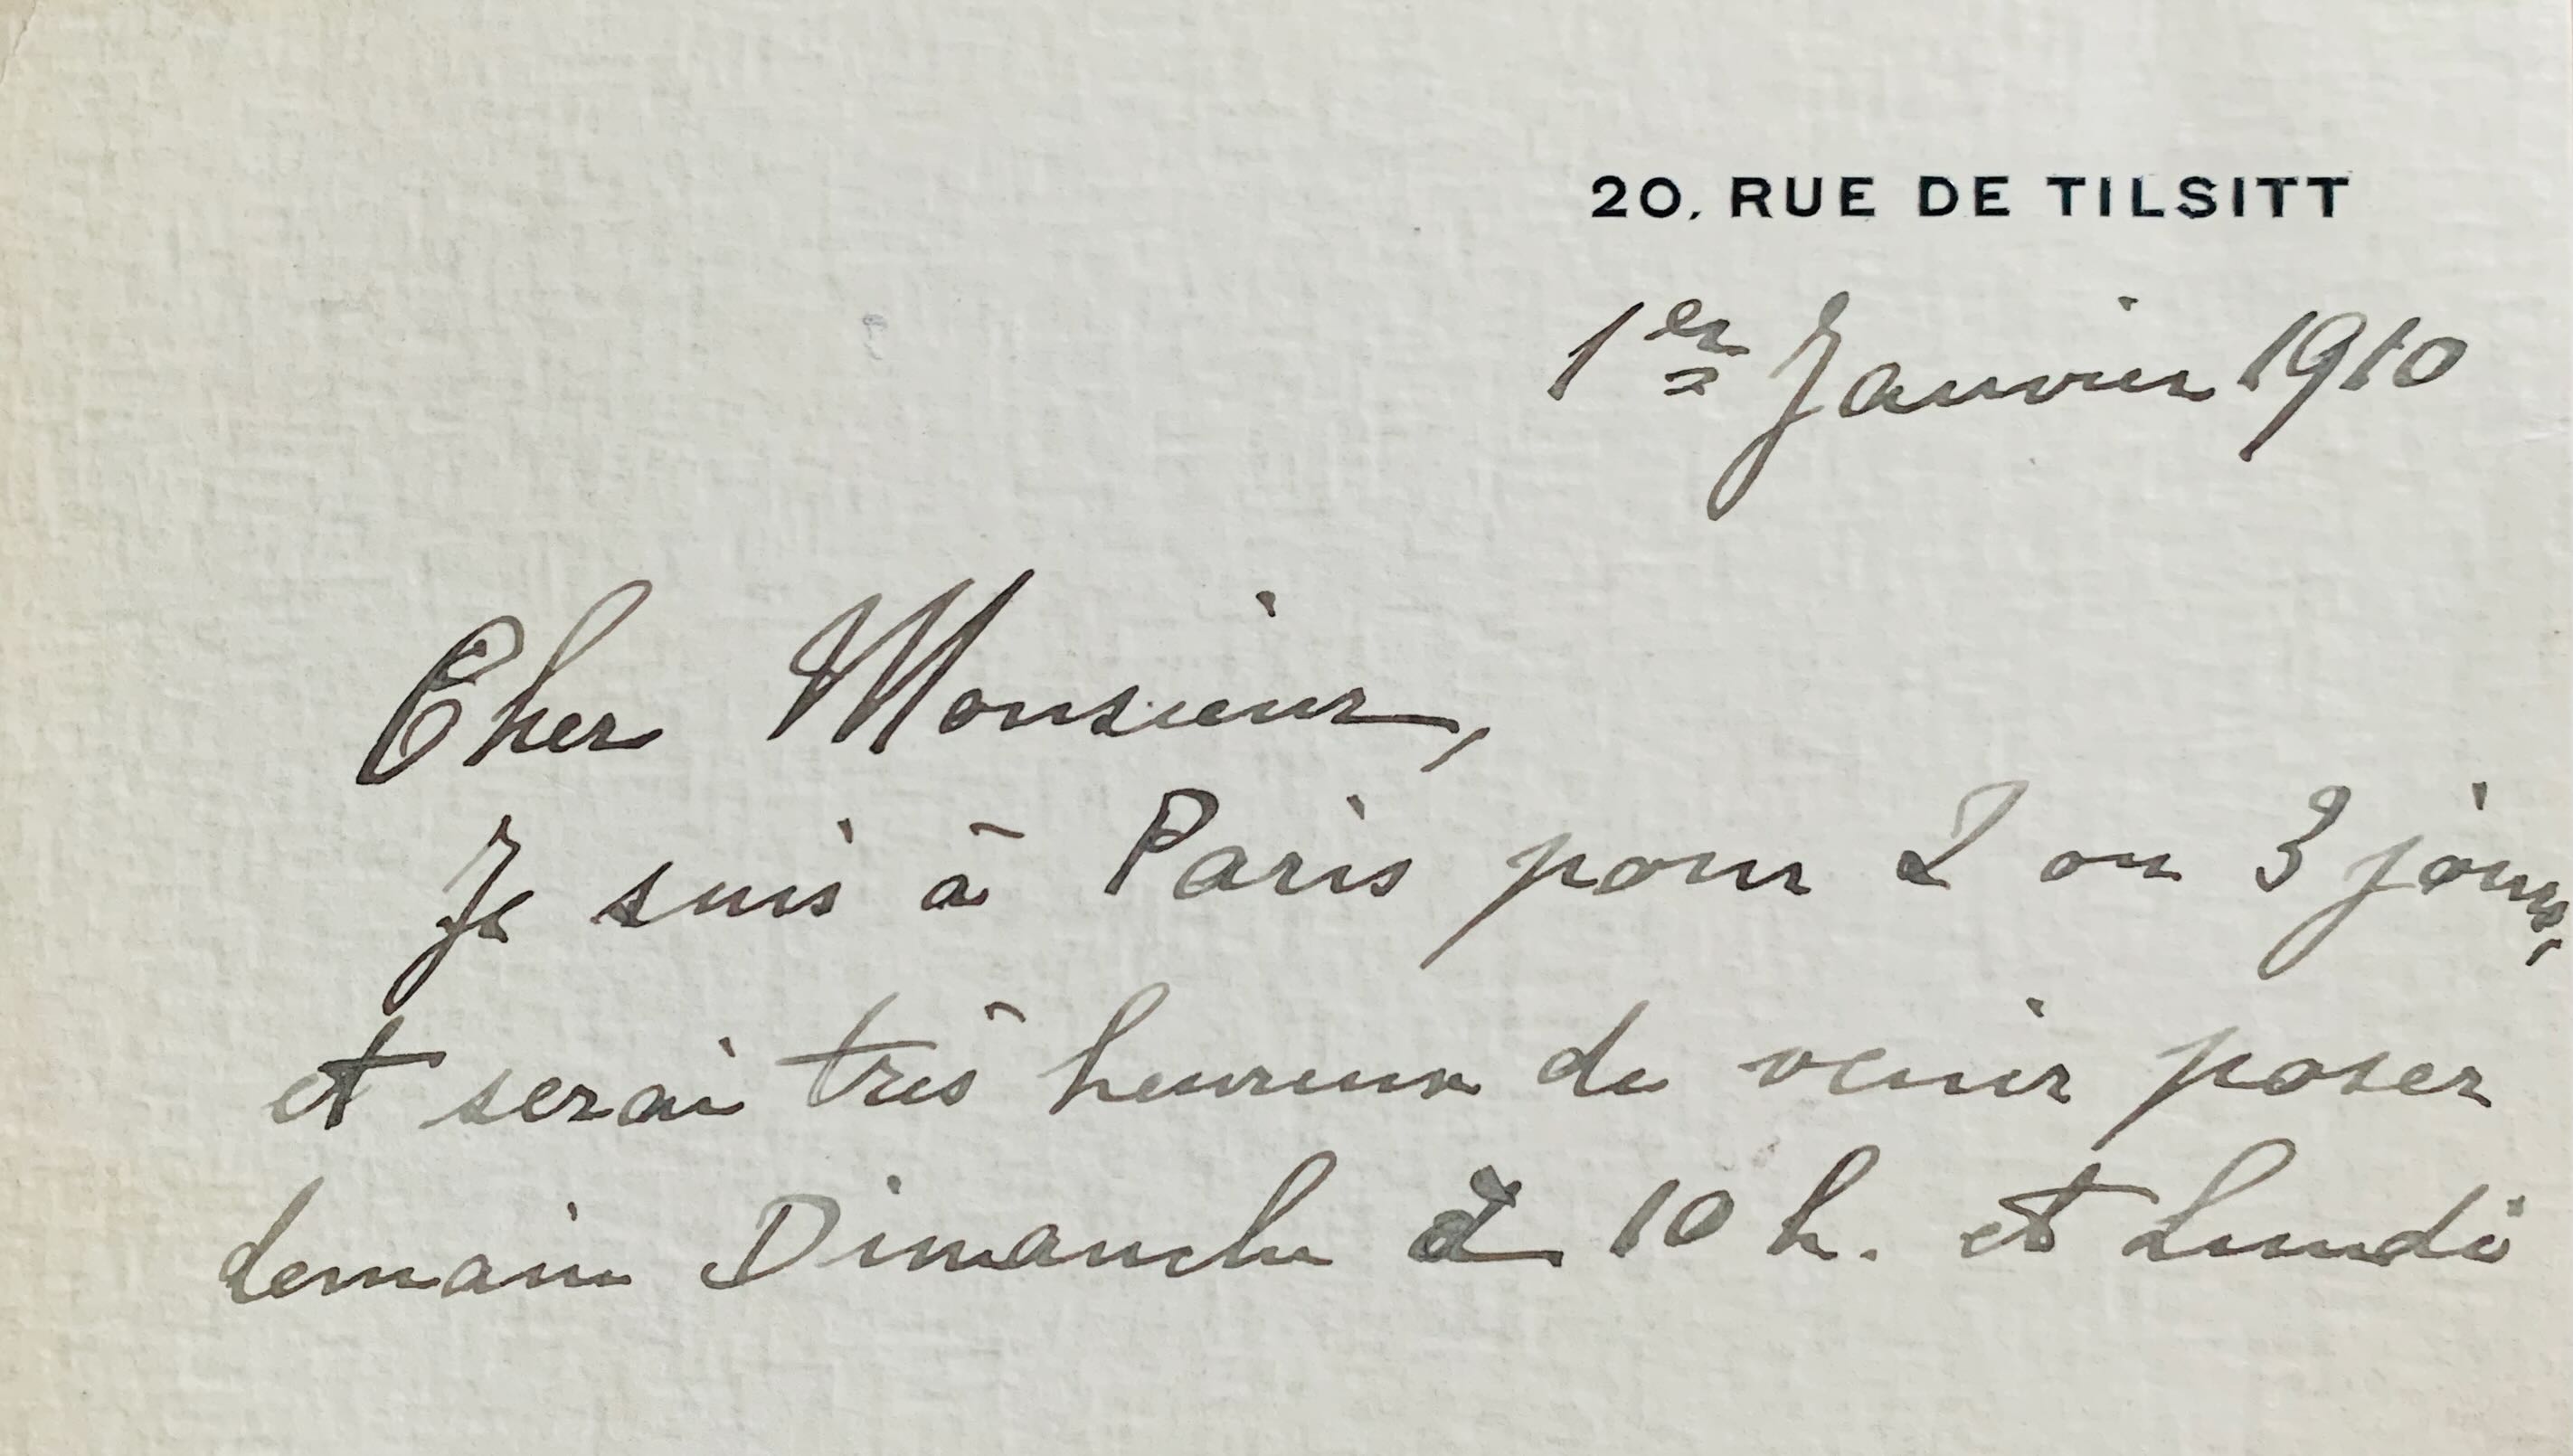 20, RUE DE TILSITT
1er Janvier 1910
Cher Monsieur,
Je suis à Paris pour 2 ou 3 jours,
et serai très heureux de venir poser
demain Dimanche à 10 h. et Lundi